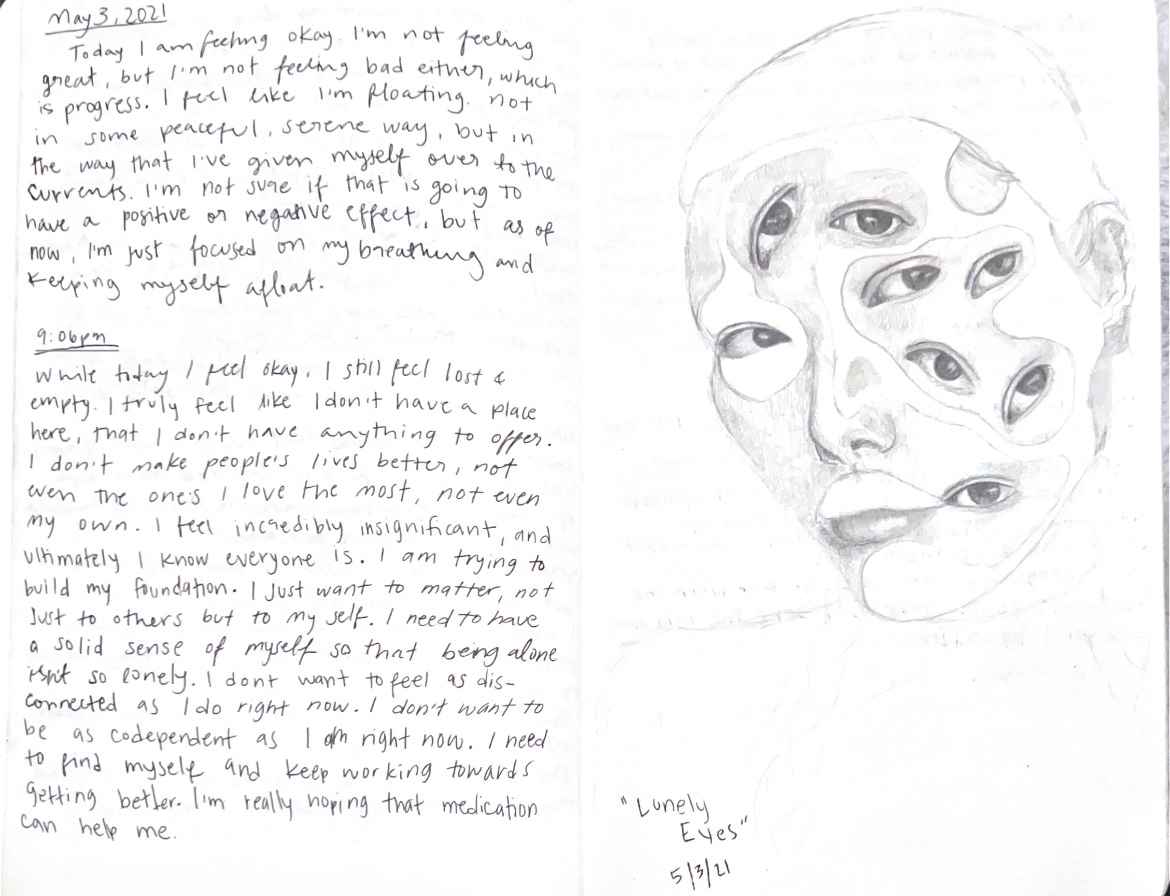 May 3, 2021
Today I am feeling okay. I'm not feeling
great, but I'm not feeling bad either, which
is progress. I feel like I'm floating. not
in some peaceful, serene way, but in
the way that I've given myself over to the
currents. I'm not sure if that is going to
have a positive or negative effect, but as of
now, I'm just focused on my breathing and
keeping myself afloat.
9:06pm
While today I feel okay. I still feel lost &
empty. I truly feel like I don't have a place
here, that I don't have anything to offer.
I don't make people's lives better, not
even the one's I love the most, not even
my own. I feel incredibly insignificant, and
ultimately I know everyone is. I am trying to
build my foundation. I just want to matter, not
just to others but to my self. I need to have
a solid sense of myself so that being alone
isn't so lonely. I dont want to feel as dis-
connected as I do right now. I don't want to
be as codependent as I am right now. I need
to find myself and keep working towards
getting better. I'm really hoping that medication
can help me.
"Lonely
Eyes"
5/3/21